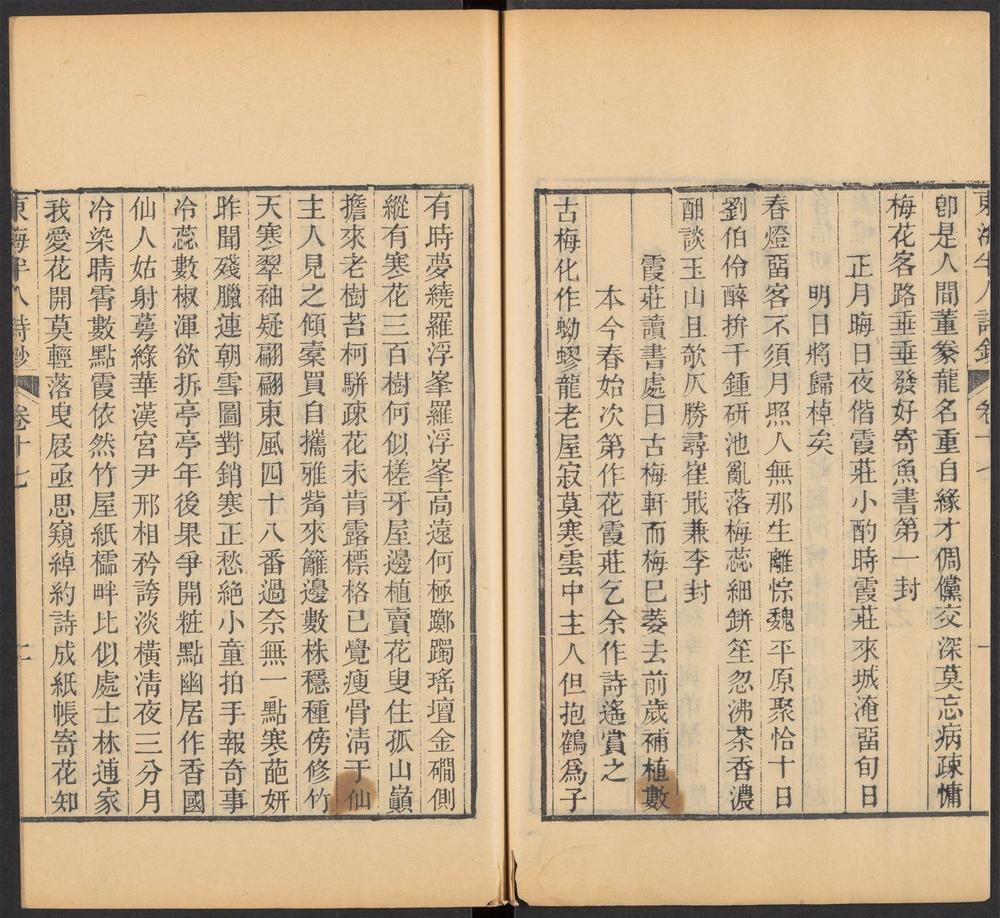 東海半人詩鈔 卷十七
卽是人間董豢龍名重自緣才倜儻交深莫忘病疎慵
梅花客路垂垂發好寄魚書第一封
正月晦日夜偕霞莊小酌時霞莊來城淹畱旬日
明日將歸棹矣
春燈畱客不須月照人無那生離悰魏平原聚恰十日
劉伯伶醉拚千鍾研池亂落梅蕊細鉼笙忽沸茶香濃
酣談玉山且欹仄勝尋崔戢兼李封
霞莊讀書處曰古梅軒而梅已萎去前歲補植數
本今春始次第作花霞莊乞余作詩遙賞之
古梅化作蚴蟉龍老屋寂莫寒雲中主人但抱鶴爲子
有時夢繞羅浮峯羅浮峯高遠何極躑躅瑤壇金磵側
縱有寒花三百樹何似槎牙屋邊植賣花叟住孤山巔
擔來老樹苔柯騈疎花未肯露標格已覺瘦骨淸于仙
主人見之傾橐買自攜雅觜來籬邊數株穩種傍修竹
天寒翠袖疑翩翩東風四十八番過奈無一點寒葩妍
昨聞殘臘連朝雪圖對銷寒正愁絕小童拍手報奇事
冷蕊數椒渾欲拆亭亭年後果爭開粧點幽居作香國
仙人姑射萼綠華漢宮尹邢相矜誇淡橫淸夜三分月
冷染晴霄數點霞依然竹屋紙櫺畔比似處士林逋家
我愛花開莫輕落曳屐亟思窺綽約詩成紙帳寄花知
東海半人詩鈔 卷十七